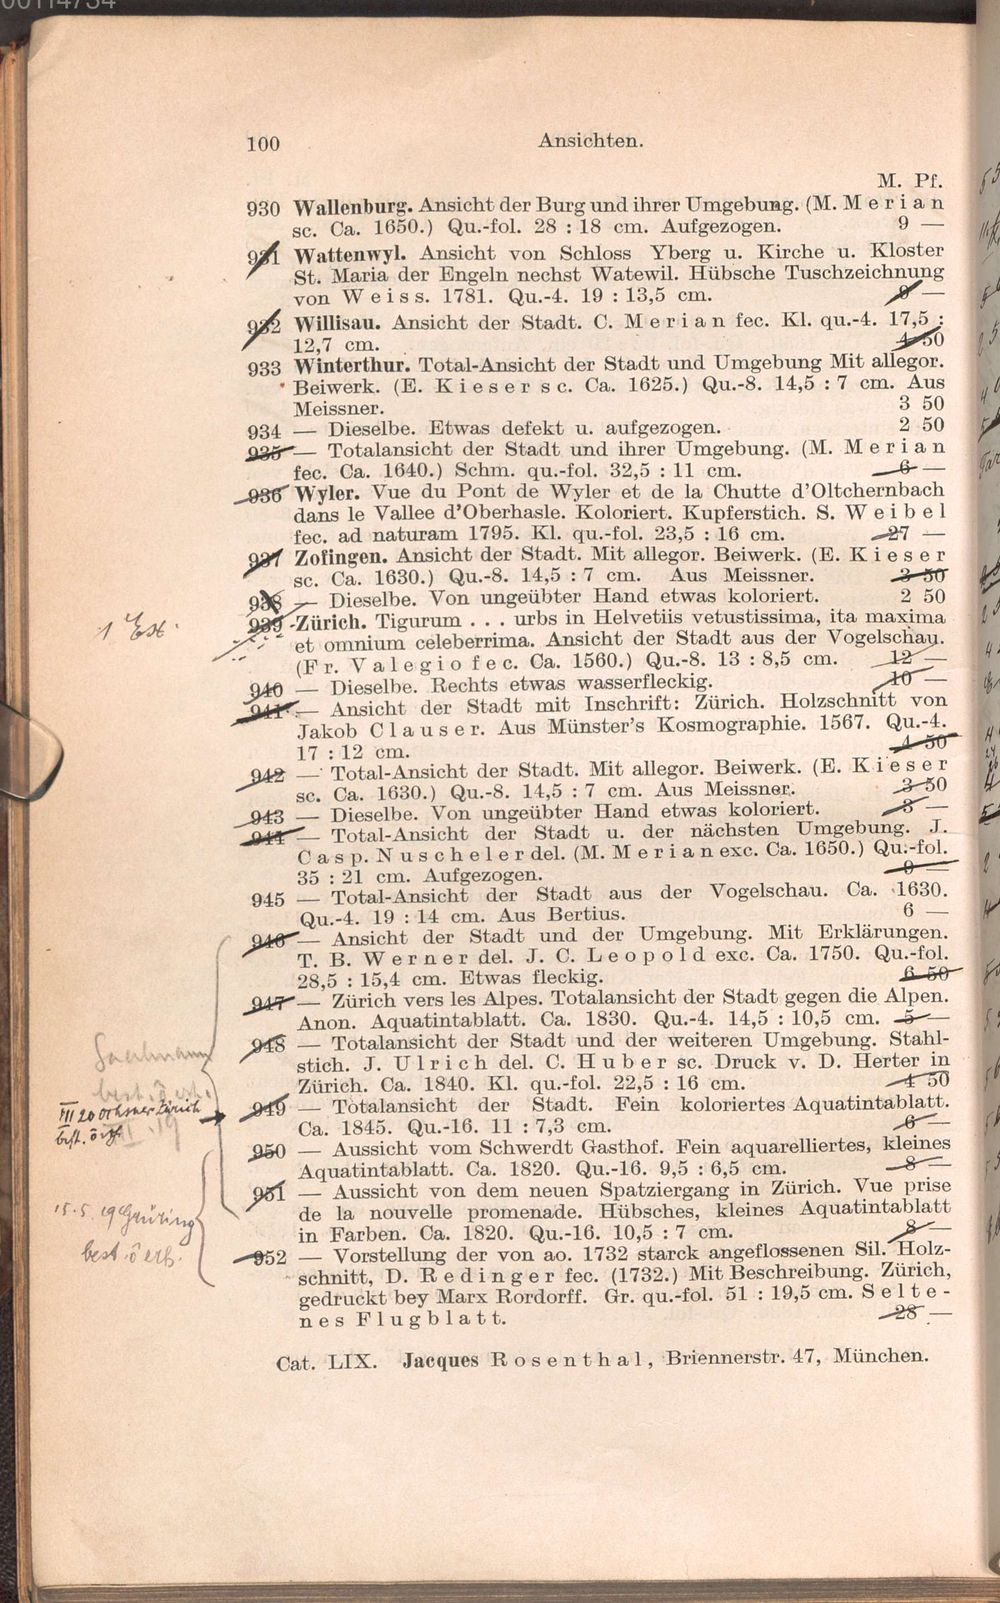 100
Ansichten.
M. Pf.
930 Wallenburg. Ansicht der Burg und ihrer Umgebung. (M. Merian
sc. Ca. 1650.) Qu.-fol. 28 : 18 cm. Aufgezogen. 9 —
931 Wattenwyl. Ansicht von Schloss Yberg u. Kirche u. Kloster
St. Maria der Engeln nechst Watewil. Hübsche Tuschzeichnung
von Weiss. 1781. Qu.-4. 19 : 13,5 cm. 9 —
932 Willisau. Ansicht der Stadt. C. Merian fec. Kl. qu.-4. 17,5 :
12,7 cm. 4 50
933 Winterthur. Total-Ansicht der Stadt und Umgebung Mit allegor.
Beiwerk. (E. Kieser sc. Ca. 1625.) Qu.-8. 14,5 : 7 cm. Aus
Meissner. 3 50
934 — Dieselbe. Etwas defekt u. aufgezogen. 2 50
935 — Totalansicht der Stadt und ihrer Umgebung. (M. Merian
fec. Ca. 1640.) Schm. qu.-fol. 32,5 : 11 cm. 6 —
936 Wyler. Vue du Pont de Wyler et de la Chutte d'Oltchernbach
dans le Vallee d'Oberhasle. Koloriert. Kupferstich. S. Weibel
fec. ad naturam 1795. Kl. qu.-fol. 23,5 : 16 cm. 27 —
937 Zofingen. Ansicht der Stadt. Mit allegor. Beiwerk. (E. Kieser
sc. Ca. 1630.) Qu.-8. 14,5 : 7 cm. Aus Meissner. 3 50
938 — Dieselbe. Von ungeübter Hand etwas koloriert. 2 50
1 Ex.
939 Zürich. Tigurum . . . urbs in Helvetiis vetustissima, ita maxima
et omnium celeberrima. Ansicht der Stadt aus der Vogelschau.
(Fr. Valegio fec. Ca. 1560.) Qu.-8. 13 : 8,5 cm. 12 —
940 — Dieselbe. Rechts etwas wasserfleckig. 10 —
941 — Ansicht der Stadt mit Inschrift: Zürich. Holzschnitt von
Jakob Clauser. Aus Münster's Kosmographie. 1567. Qu.-4.
17 : 12 cm. 4 50
942 — Total-Ansicht der Stadt. Mit allegor. Beiwerk. (E. Kieser
sc. Ca. 1630.) Qu.-8. 14,5 : 7 cm. Aus Meissner. 3 50
943 — Dieselbe. Von ungeübter Hand etwas koloriert. 3 —
944 — Total-Ansicht der Stadt u. der nächsten Umgebung. J.
Casp. Nuscheler del. (M. Merian exc. Ca. 1650.) Qu.-fol.
35 : 21 cm. Aufgezogen. 9 —
945 — Total-Ansicht der Stadt aus der Vogelschau. Ca. 1630.
Qu.-4. 19 : 14 cm. Aus Bertius. 6 —
946 — Ansicht der Stadt und der Umgebung. Mit Erklärungen.
T. B. Werner del. J. C. Leopold exc. Ca. 1750. Qu.-fol.
28,5 : 15,4 cm. Etwas fleckig. 6 50
947 — Zürich vers les Alpes. Totalansicht der Stadt gegen die Alpen.
Anon. Aquatintablatt. Ca. 1830. Qu.-4. 14,5 : 10,5 cm. 5 —
948 — Totalansicht der Stadt und der weiteren Umgebung. Stahl-
stich. J. Ulrich del. C. Huber sc. Druck v. D. Herter in
Zürich. Ca. 1840. Kl. qu.-fol. 22,5 : 16 cm. 4 50
949 — Totalansicht der Stadt. Fein koloriertes Aquatintablatt.
Ca. 1845. Qu.-16. 11 : 7,3 cm. 6 —
950 — Aussicht vom Schwerdt Gasthof. Fein aquarelliertes, kleines
Aquatintablatt. Ca. 1820. Qu.-16. 9,5 : 6,5 cm. 8 —
951 — Aussicht von dem neuen Spatziergang in Zürich. Vue prise
de la nouvelle promenade. Hübsches, kleines Aquatintablatt
in Farben. Ca. 1820. Qu.-16. 10,5 : 7 cm. 8 —
952 — Vorstellung der von ao. 1732 starck angeflossenen Sil. Holz-
schnitt, D. Redinger fec. (1732.) Mit Beschreibung. Zürich,
gedruckt bey Marx Rordorff. Gr. qu.-fol. 51 : 19,5 cm. Selte-
nes Flugblatt. 28 —
III 20 Zürich
best. ö
15.5.19
best. ö erh.
Cat. LIX. Jacques Rosenthal, Briennerstr. 47, München.